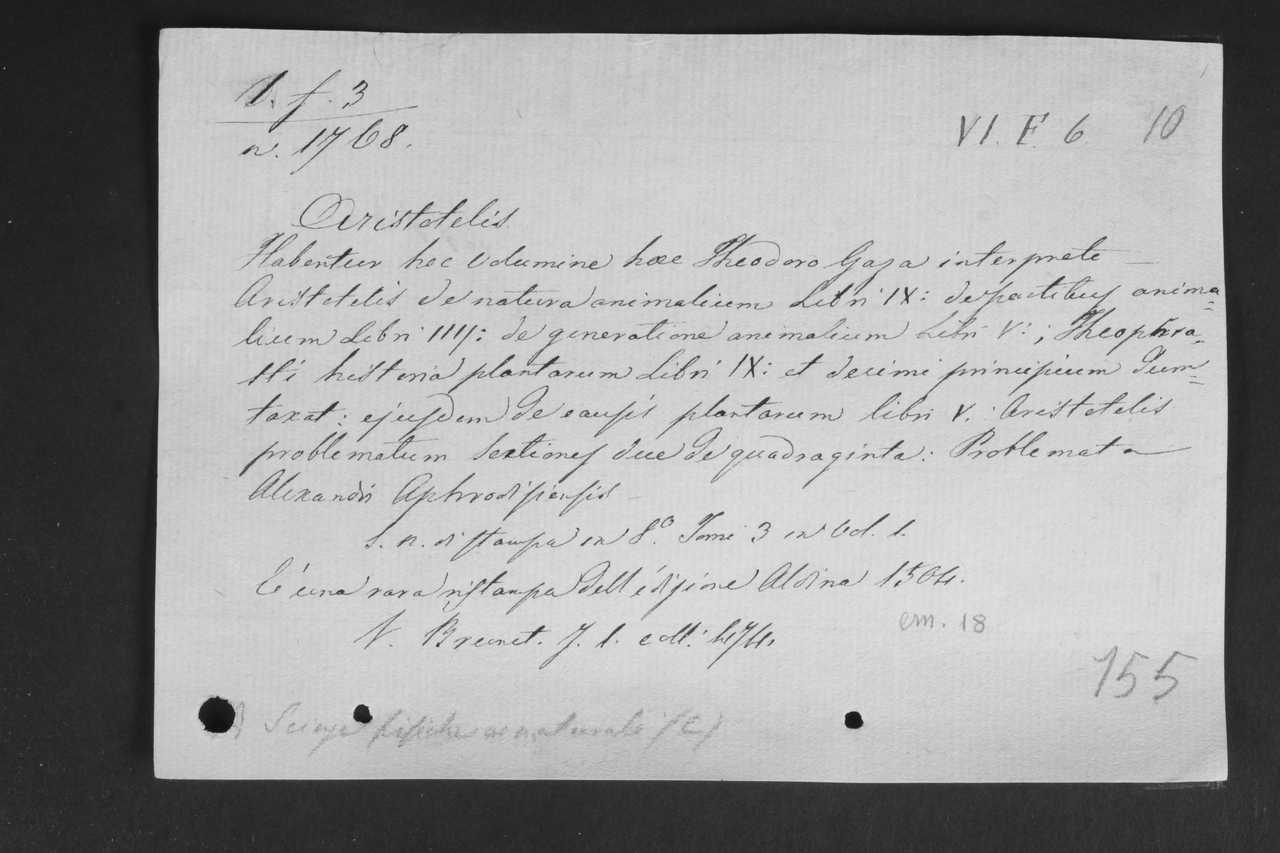 1. f. 3
n. 1768.
VI. F. 6 10
Aristotelis
Habentur hoc Volumine hæc Theodoro Gaza interprete —
Aristotelis de natura animalium Libri IX: de partibus anima=
lium Libri IIII: de generatione animalium Libri V: ; Theophra=
sti historia plantarum Libri IX: et decimi principium Dum=
taxat: ejusdem De causis plantarum libri V. : Aristotelis
problematum sectiones duæ De quadraginta: Problemata —
Alexandri Aphrodisiensis —
s. n. di stampa in 8.º Tomi 3 in Vol. 1.
È una rara ristampa Dell'édizione Aldina 1504.
V. Brunet. T. 1. coll: 474.
cm. 18
155
Scienze fisiche e naturali (E)